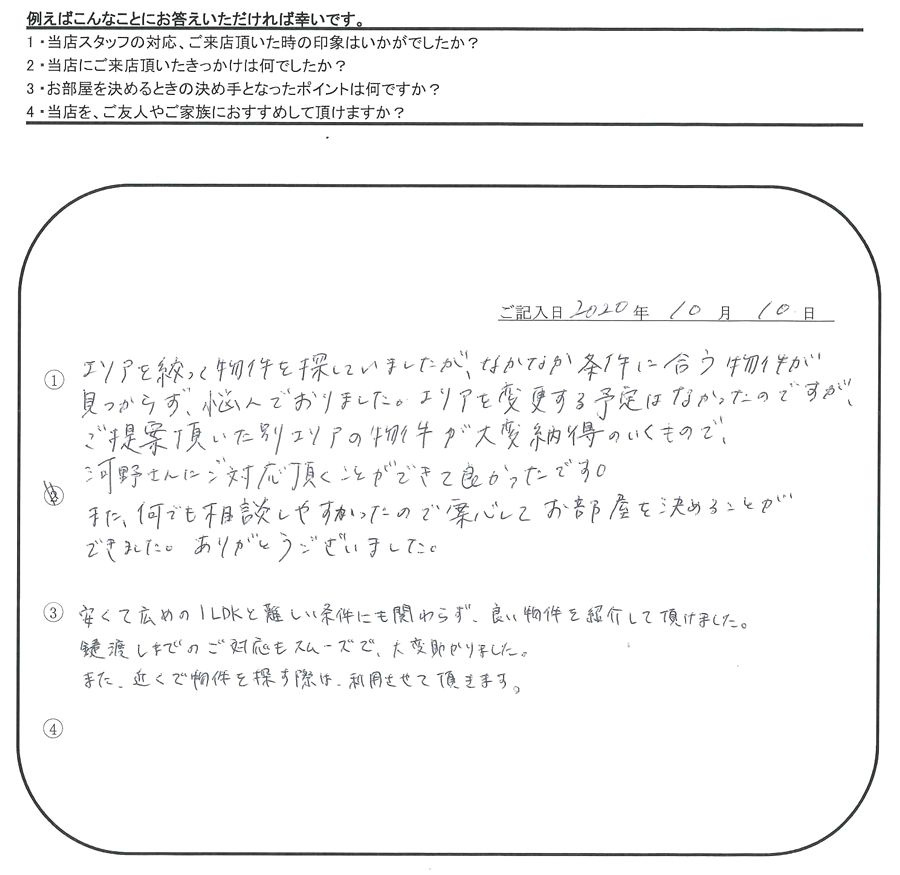 例えばこんなことにお答えいただければ幸いです。
1・当店スタッフの対応、ご来店頂いた時の印象はいかがでしたか？
2・当店にご来店頂いたきっかけは何でしたか？
3・お部屋を決めるときの決め手となったポイントは何ですか？
4・当店を、ご友人やご家族におすすめして頂けますか？
ご記入日 2020 年 10 月 10 日
① エリアを絞って物件を探していましたが、なかなか条件に合う物件が
見つからず、悩んでおりました。エリアを変更する予定はなかったのですが、
ご提案頂いた別エリアの物件が大変納得のいくもので、
河野さんにご対応頂くことができて良かったです。
②
また、何でも相談しやすかったので安心してお部屋を決めることが
できました。ありがとうございました。
③ 安くて広めの1LDKと難しい条件にも関わらず、良い物件を紹介して頂けました。
鍵渡しまでのご対応もスムーズで、大変助かりました。
また、近くで物件を探す際は、利用させて頂きます。
④